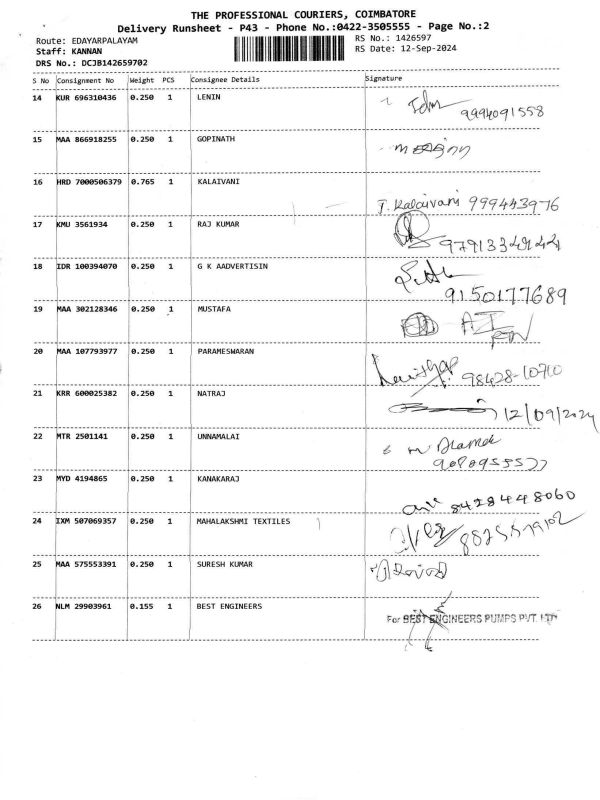 THE PROFESSIONAL COURIERS, COIMBATORE
Delivery Runsheet - P43 - Phone No.:0422-3505555 - Page No.:2
Route: EDAYARPALAYAM
RS No.: 1426597
Staff: KANNAN
RS Date: 12-Sep-2024
DRS No.: DCJB142659702
S No Consignment No Weight PCS Consignee Details Signature
14 KUR 696310436 0.250 1 LENIN
9994091558
15 MAA 866918255 0.250 1 GOPINATH
16 HRD 7000506379 0.765 1 KALAIVANI
T. Kalaivani 999443976
17 KMU 3561934 0.250 1 RAJ KUMAR
18 IDR 100394070 0.250 1 G K AADVERTISIN
9150177689
19 MAA 302128346 0.250 1 MUSTAFA
20 MAA 107793977 0.250 1 PARAMESWARAN
98428-10710
21 KRR 600025382 0.250 1 NATRAJ
12/09/2024
22 MTR 2501141 0.250 1 UNNAMALAI
23 MYD 4194865 0.250 1 KANAKARAJ
8428448060
24 IXM 507069357 0.250 1 MAHALAKSHMI TEXTILES
25 MAA 575553391 0.250 1 SURESH KUMAR
26 NLM 29903961 0.155 1 BEST ENGINEERS
For BEST ENGINEERS PUMPS PVT. LTD